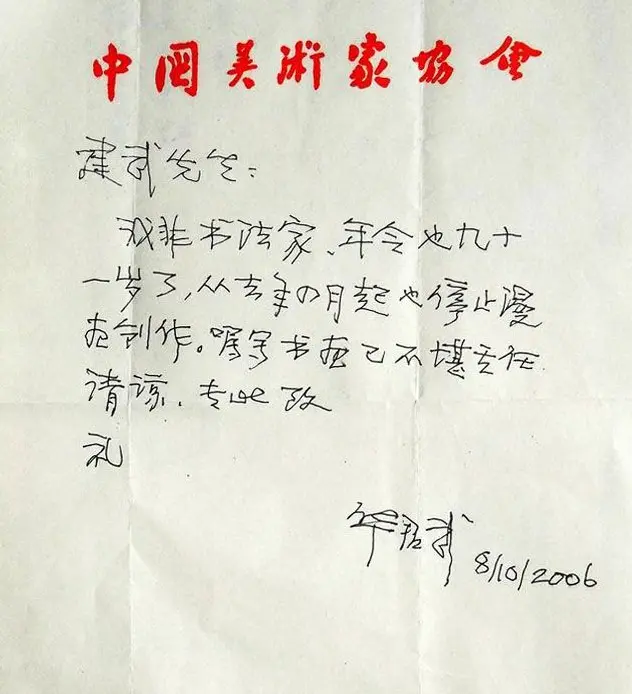 中國美術家協會
建武先生：
我非书法家、年令也九十
一岁了,从去年四月起也停止漫
画创作。嘱写书画已不堪重任
请谅、专此 致
礼
华君武 8/10/2006